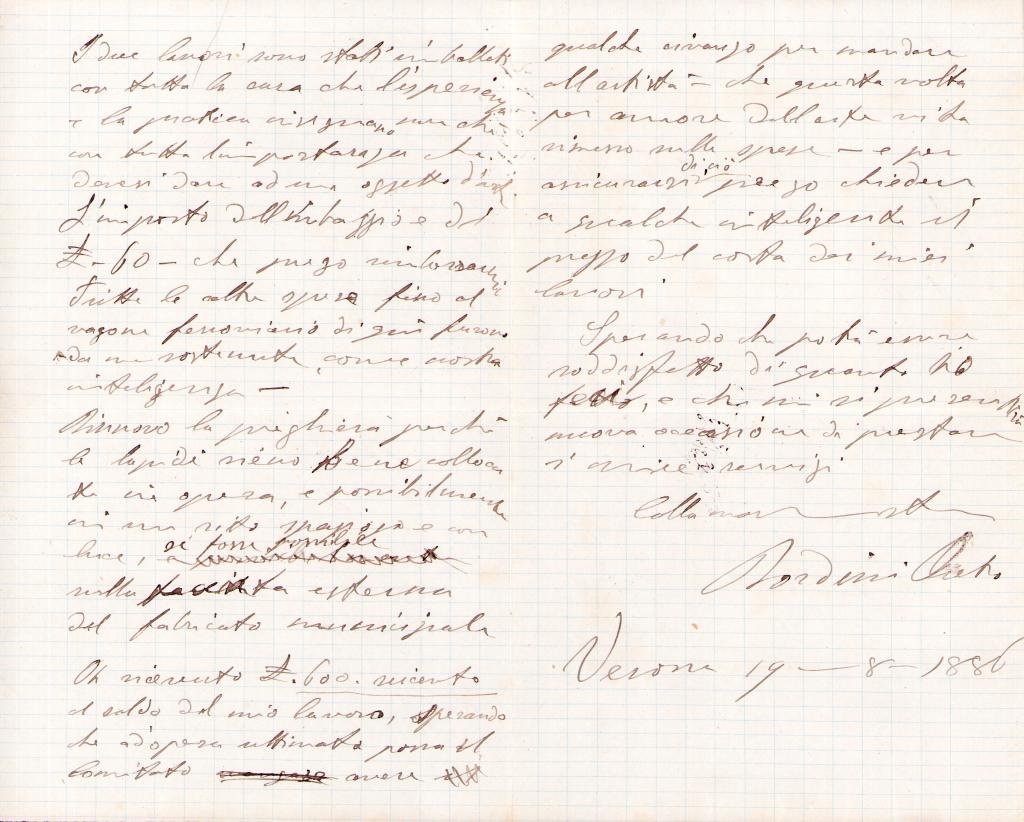 I due lavori sono stati imballati
con tutta la cura che l'esperienza
e la pratica insegnano non che
con tutta l'importanza che
devesi dare ad una oggetto d'arte
L'importo dell'imbaggio e di
£ - 60 - che prego rimborsarmi
Tutte le altre spese fino al
vagone ferroviario di quì furono
da me sostenute, come nostra
inteligenza -
Rinnovo la preghiera perchè
le lapidi sieno bene colloca
te in opera, e possibilmente
in un sito spazioso e con
luce, se fosse possibile
sulla facciata esterna
del fabricato municipale
Ho ricevuto £. 600. seicento
a saldo del mio lavoro, sperando
che ad opera ultimata possa il
Comitato avere
qualche avanzo per mandare
all'artista - che questa volta
per amore dell'arte vi ha
rimesso nelle spese - e per
assicurarsi di ciò prego chiedere
a qualche inteligente il
prezzo del costo dei miei
lavori
Sperando che potrà essere
soddisfatto di quanto ho
fatto, e che mi si presenti
nuova occasione di prestare
i miei servigi
Colla
Bordini
Verona 19 - 8 - 1886